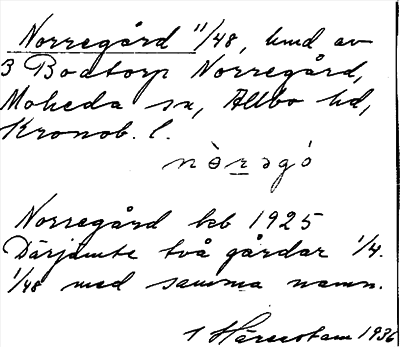 Norregård 11/48, hmd av
3 Boatorp Norregård,
Moheda sn, Allbo hd,
Kronob. l.
nòrregó
Norregård kb 1925
Därjämte två gårdar 1/4.
1/48 med samma namn.
1936